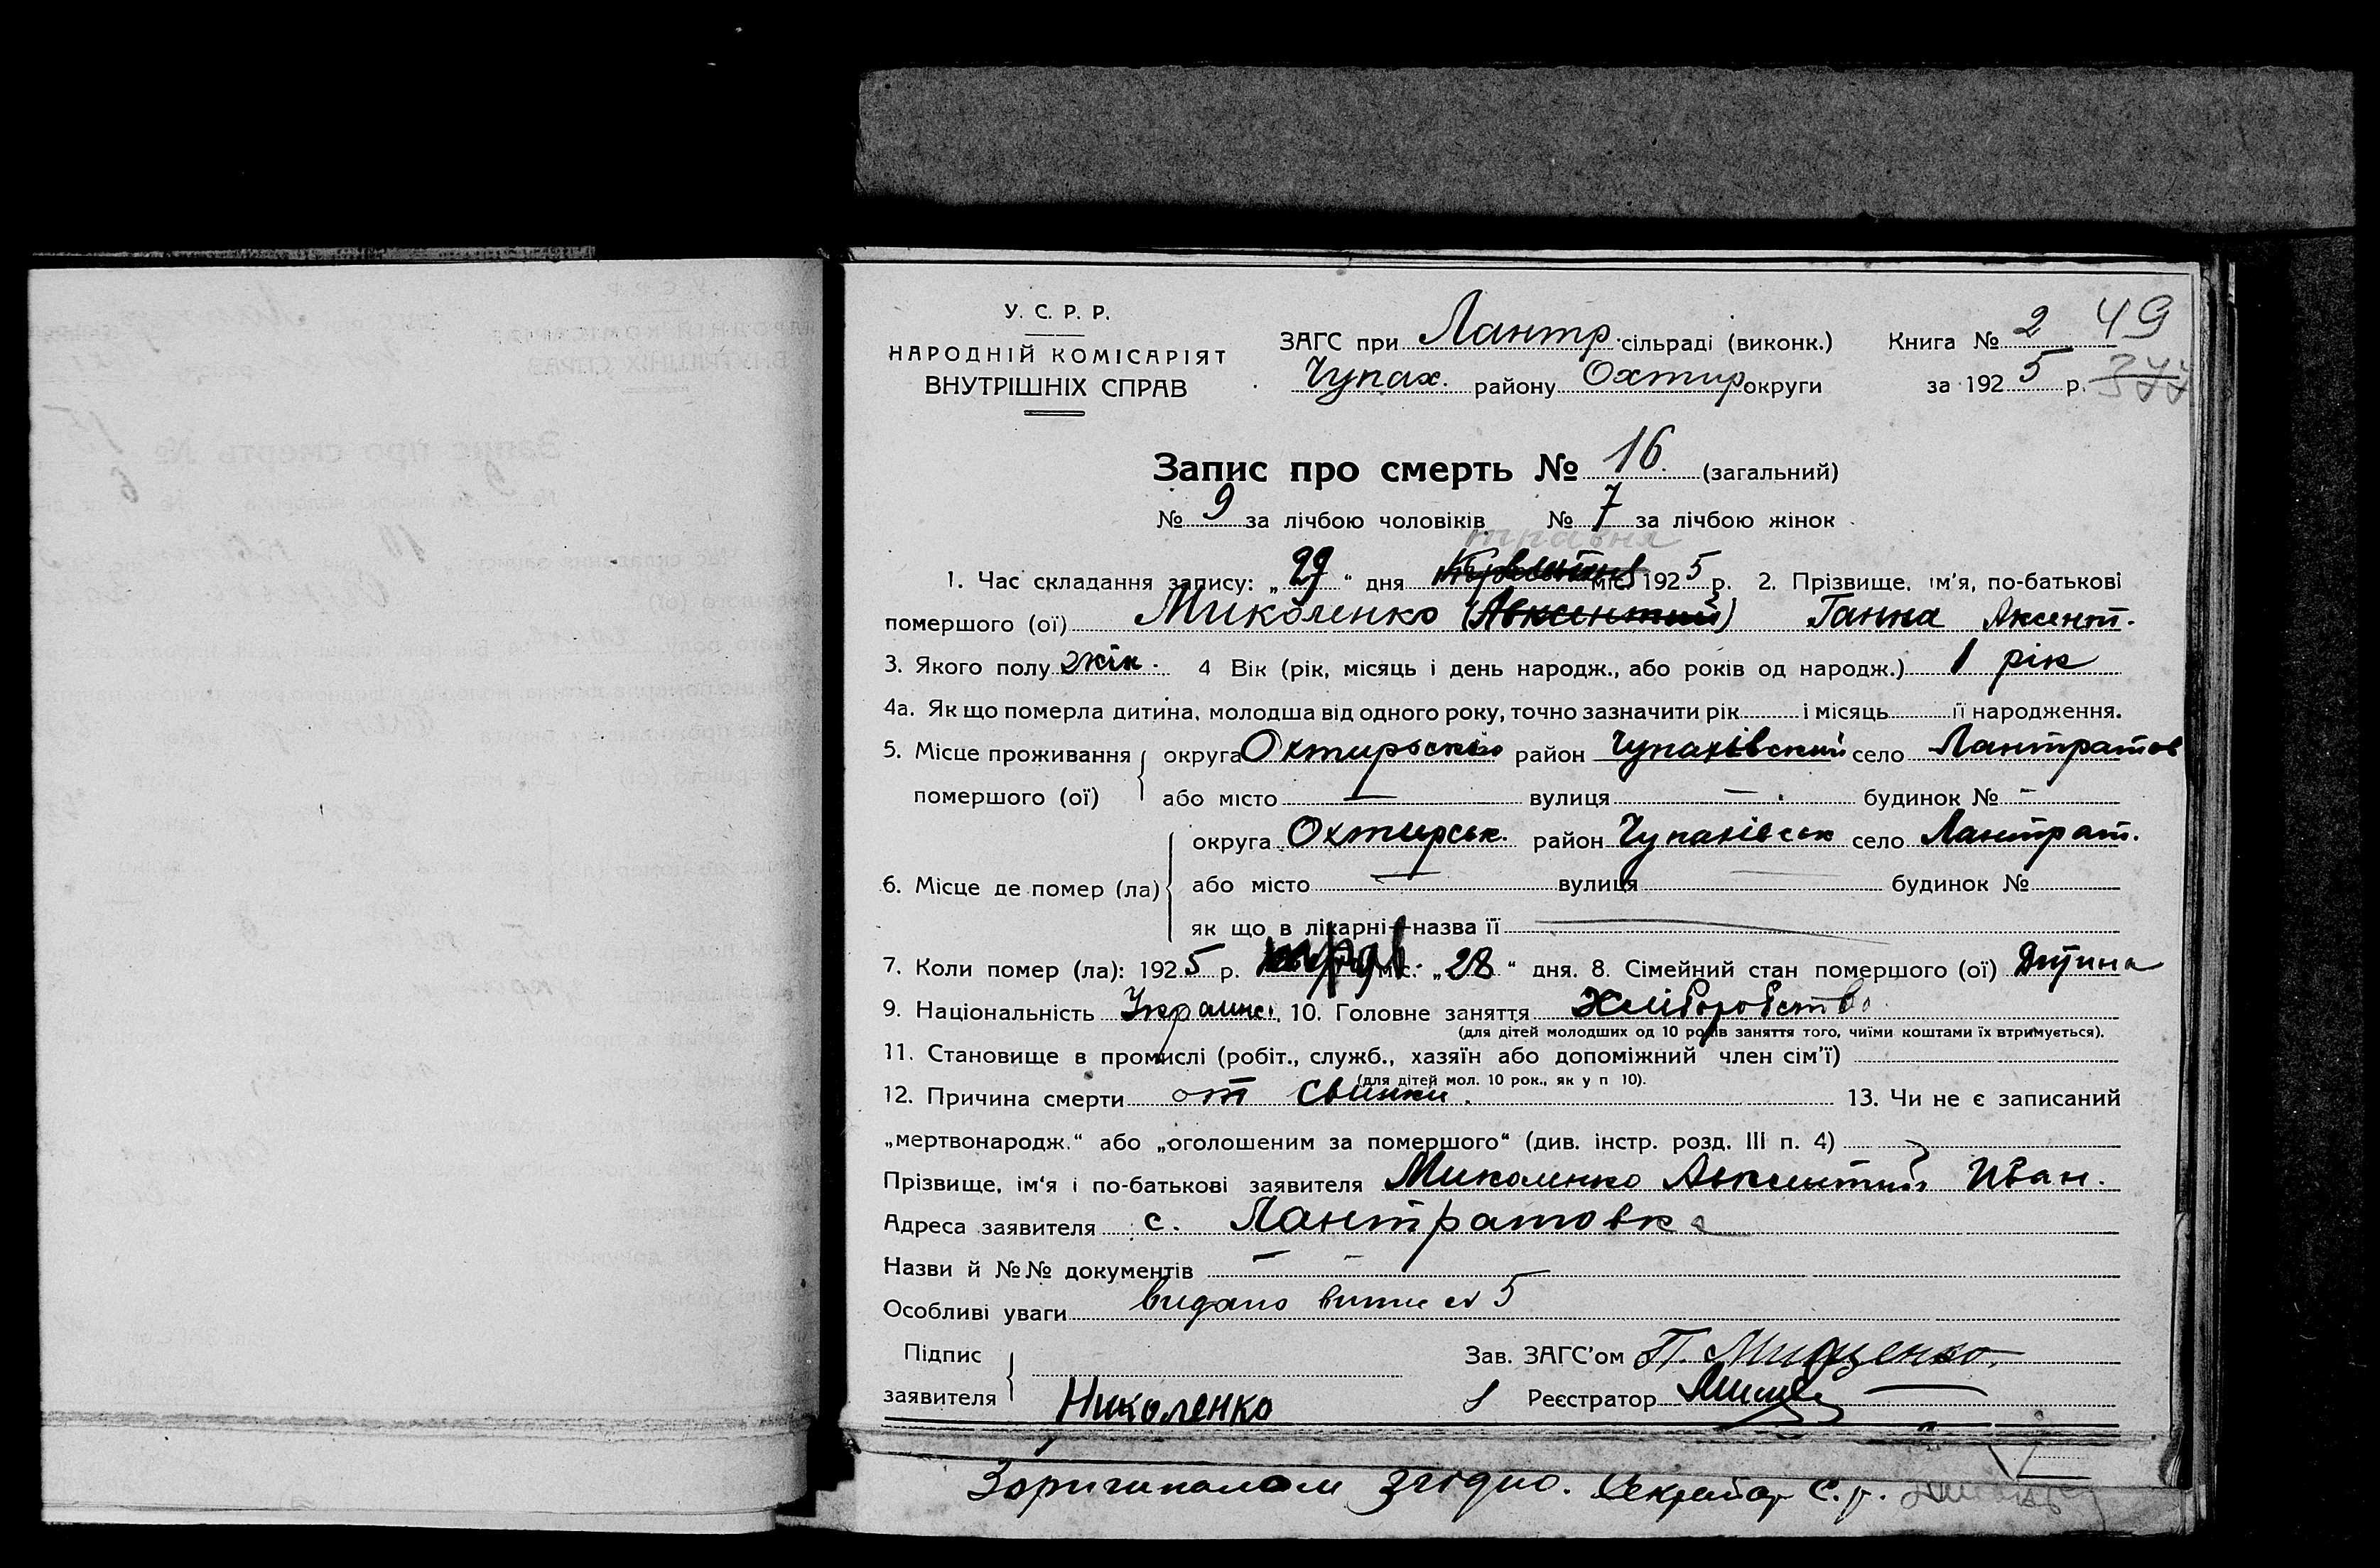 У. С. Р. Р.
НАРОДНІЙ КОМІСАРІЯТ
ВНУТРІШНІХ СПРАВ
ЗАГС при Лантр. сільраді (виконк.) Книга № 2 49
Чупах. району Охтир округи за 1925 р. 377
Запис про смерть № 16. (загальний)
№ 9 за лічбою чоловіків № 7 за лічбою жінок
травня
1. Час складання запису: „29“ дня міс. 1925 р. 2. Прізвище, ім'я, по-батькові
помершого (ої) Миколенко (Авксентий) Ганна Аксент.
3. Якого полу жін. 4 Вік (рік, місяць і день народж., або років од народж.) 1 рік
4а. Як що померла дитина, молодша від одного року, точно зазначити рік і місяць її народження.
5. Місце проживання помершого (ої) округа Охтирській район Чупахівський село Лантратов
або місто — вулиця — будинок № -
6. Місце де помер (ла) округа Охтирськ. район Чупахівськ село Лантрат.
або місто — вулиця — будинок №
як що в лікарні—назва її
7. Коли помер (ла): 1925 р. трав. міс. „28“ дня. 8. Сімейний стан помершого (ої) Дитина
9. Національність Украинс. 10. Головне заняття Хліборобство
(для дітей молодших од 10 років заняття того, чиїми коштами їх втримується).
11. Становище в промислі (робіт., служб., хазяїн або допоміжний член сім'ї)
(для дітей мол. 10 рок., як у п 10).
12. Причина смерти от свинки. 13. Чи не є записаний
„мертвонародж.“ або „оголошеним за помершого“ (див. інстр. розд. III п. 4)
Прізвище, ім'я і по-батькові заявителя Миколенко Авксентий Иван.
Адреса заявителя с. Лантратовка
Назви й №№ документів — —
Особливі уваги видано 5
Підпис заявителя Николенко
Зав. ЗАГС'ом П. Мищенко
Реєстратор
Зоригиналом згідно. Секретар С. р.